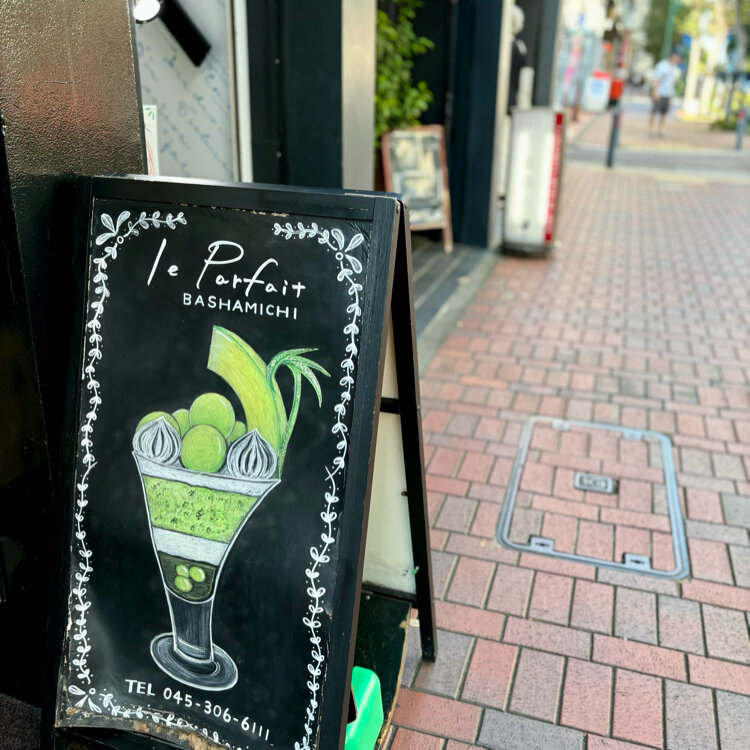 le Parfait
BASHAMICHI
TEL 045-306-6111